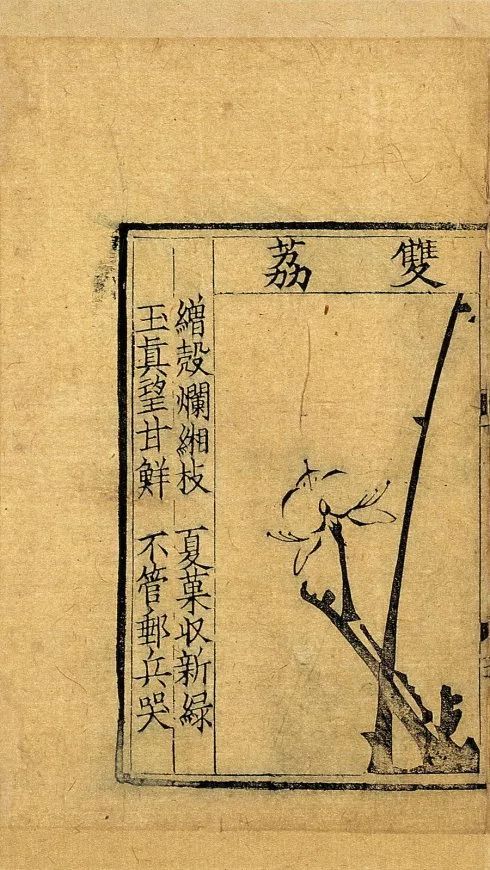 雙荔
繒殼爛緗枝　夏菓収新綠
玉眞望甘鮮　不管郵兵哭